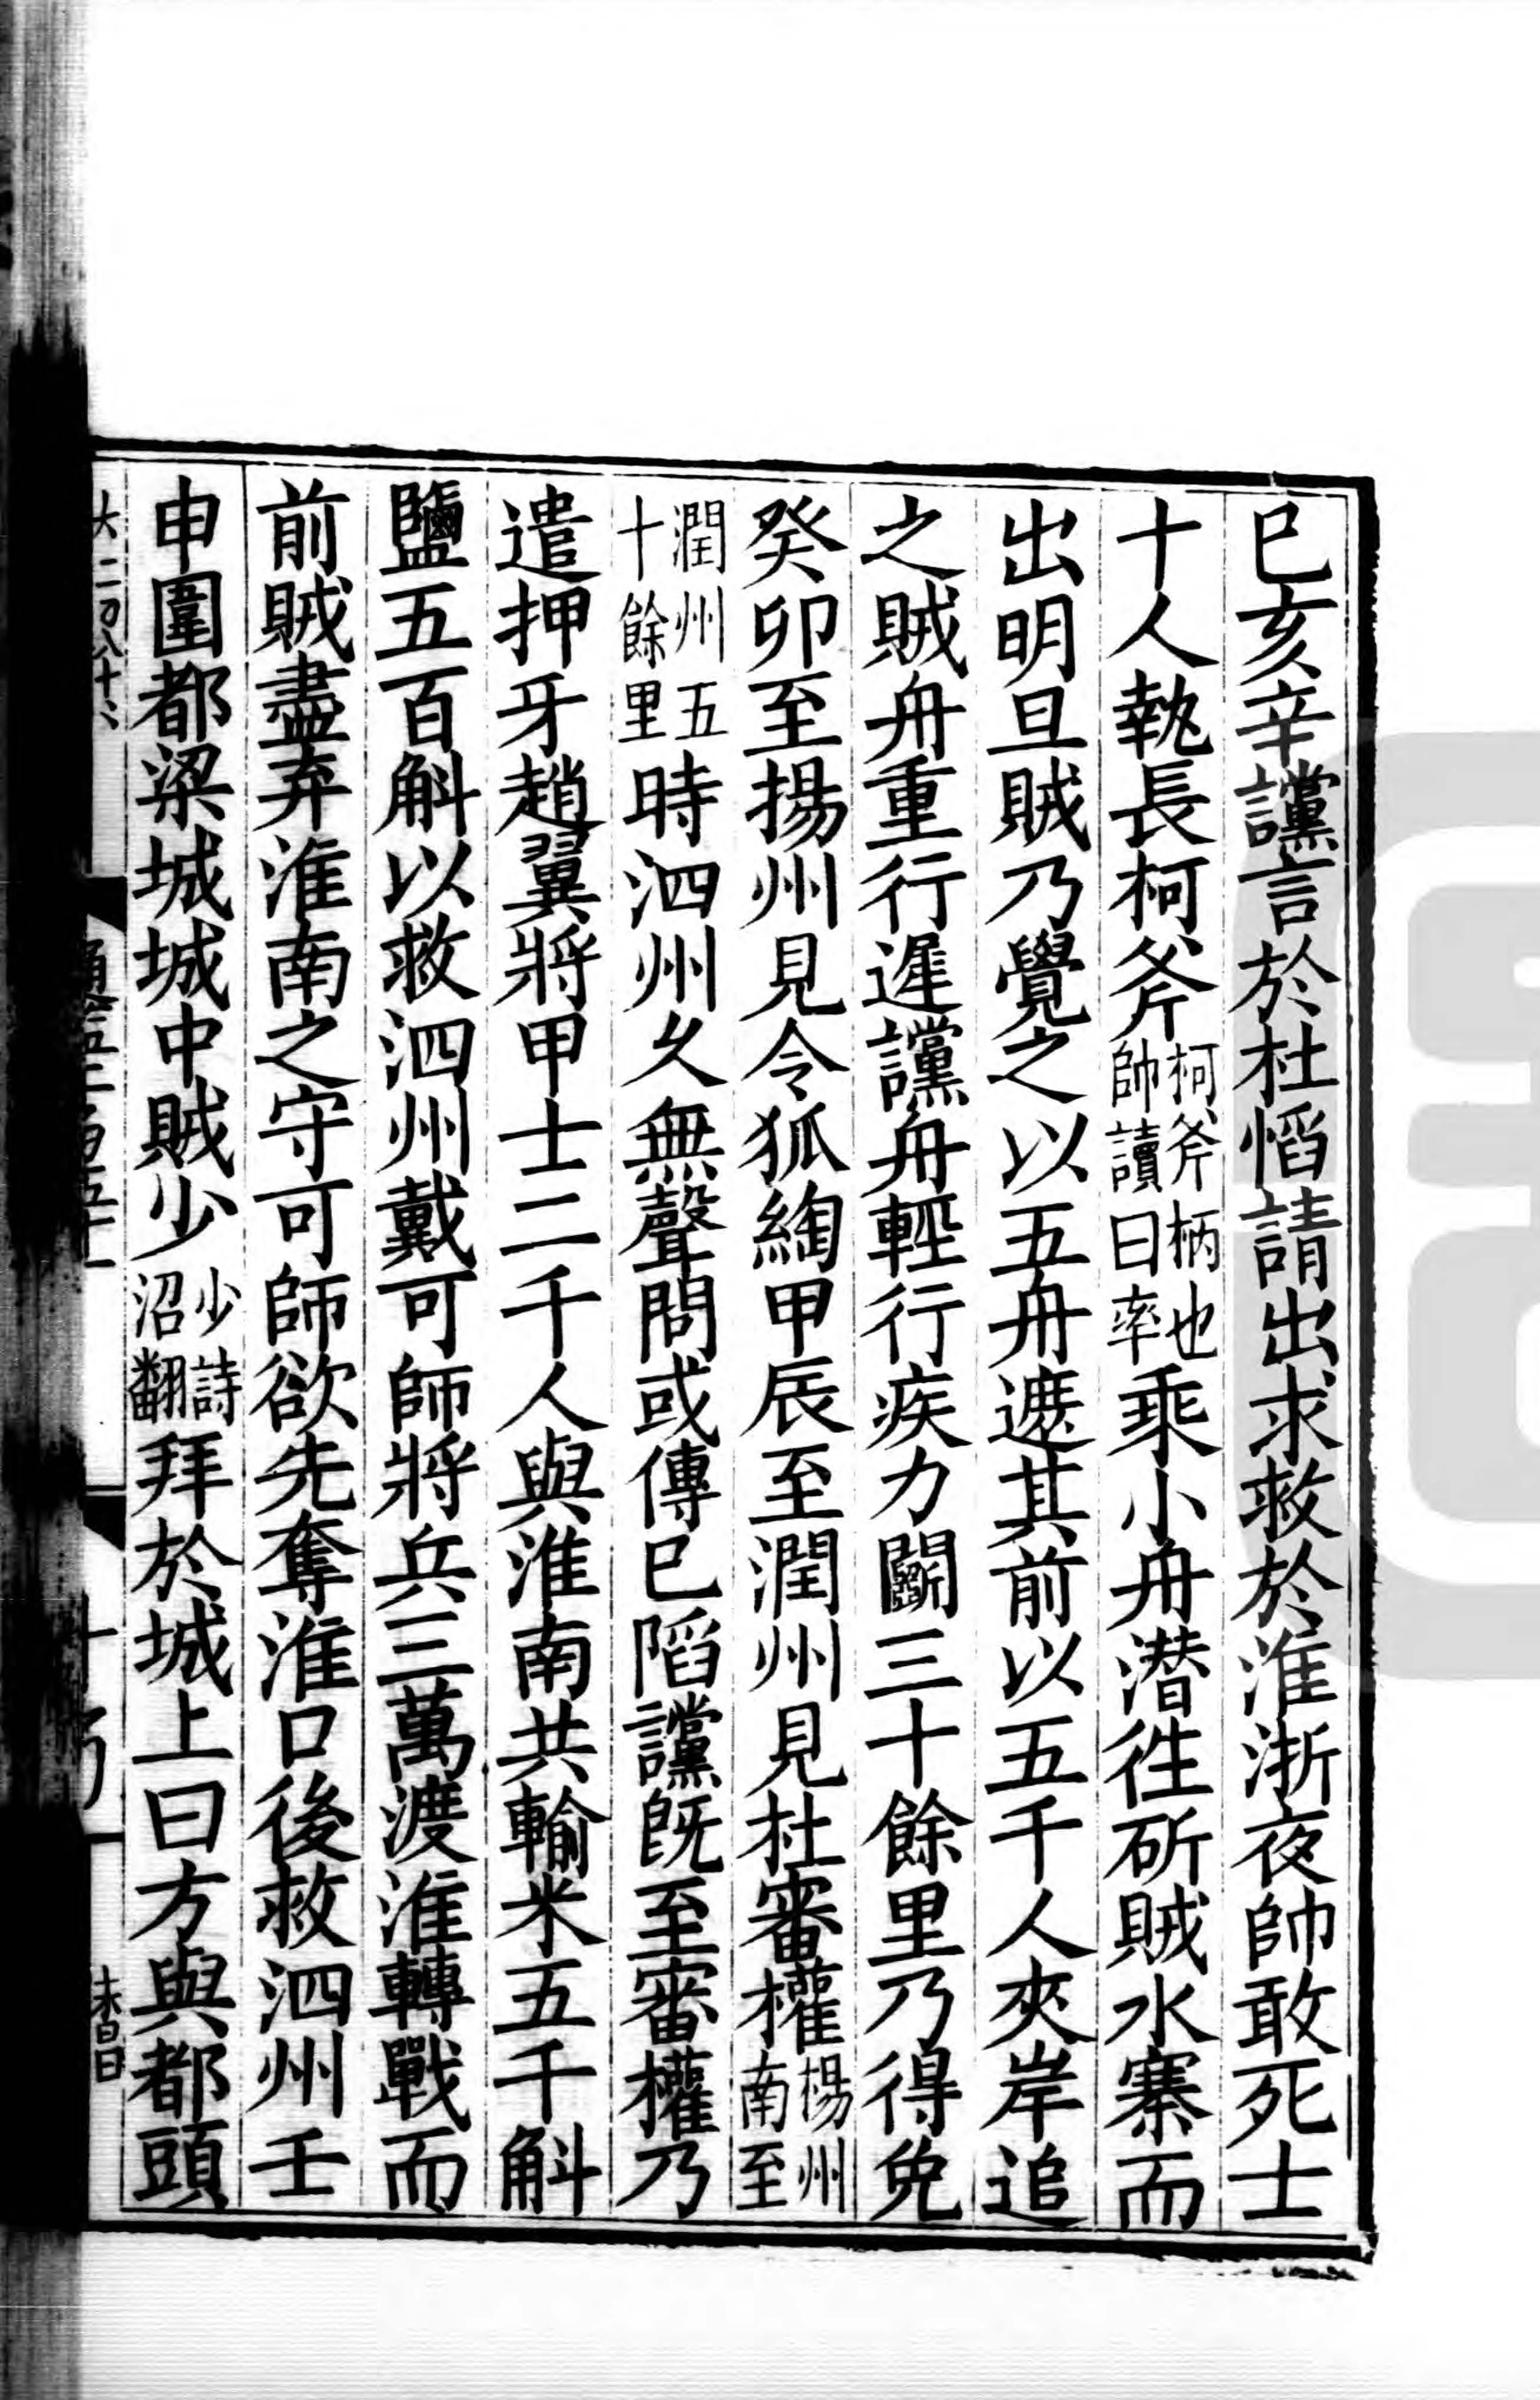 己亥辛讜言於杜慆請出求救於淮浙夜帥敢死士
十人執長柯斧柯斧柄也帥讀曰率乘小舟潜徃斫賊水寨而
出明旦賊乃覺之以五舟遮其前以五千人夾岸追
之賊舟重行遲讜舟輕行疾力鬬三十餘里乃得免
癸卯至揚州見令狐綯甲辰至潤州見杜審權楊州南至
潤州五十餘里時泗州久無聲問或傳已陷讜旣至審權乃
遣押牙趙翼將甲士二千人與淮南共輸米五千斛
鹽五百斛以救泗州戴可師將兵三萬渡淮轉戰而
前賊盡弃淮南之守可師欲先奪淮口後救泗州壬
申圍都梁城城中賊少少詩沼翻拜於城上曰方與都頭